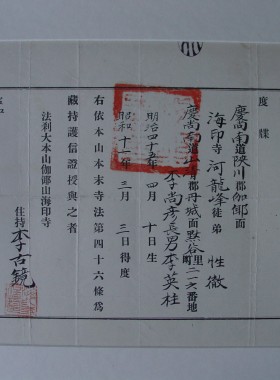 度牒
慶尚南道陜川郡伽倻面
海印寺 河龍峰徒弟 性徹
慶尚南道山清郡丹城面默谷里二一六番地
李尚彦長男李英柱
明治四十五年四月十日生
昭和十二年三月三日得度
右依本山本末寺法第四十六條為
藏持護信證授與之者
法刹大本山伽倻山海印寺
住持李古鏡